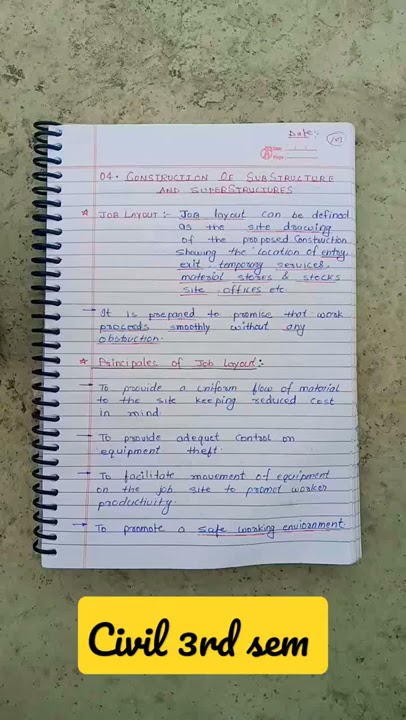 Date:-
04. CONSTRUCTION OF SUBSTRUCTURE
AND SUPERSTRUCTURES
* JOB LAYOUT:- Job layout can be defined
as the site drawing
of the proposed construction
showing the location of entry,
exit, temporary services,
material stores & stocks
site offices etc.
→ It is prepared to promise that work
proceeds smoothly without any
obstruction.
* Principales of Job Layout:-
→ To provide a uniform flow of material
to the site keeping reduced cost
in mind.
→ To provide adequet control on
equipment theft.
→ To facilitate movement of equipment
on the job site to promot worker
productivity.
→ To promote a safe working enviornment.
Civil 3rd sem